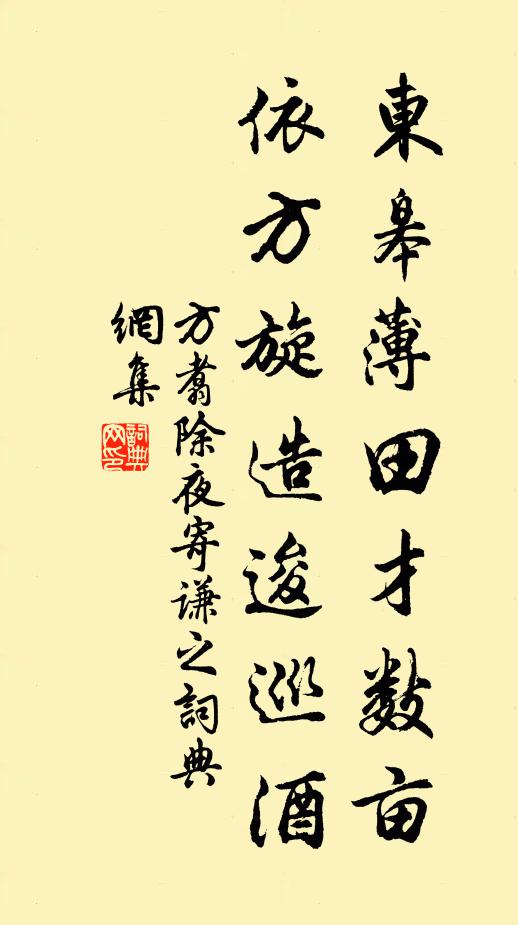 東皋薄田才數亩
依方旋造逡巡酒
方翥除夜寄谦之詞典
網集
詞典网印